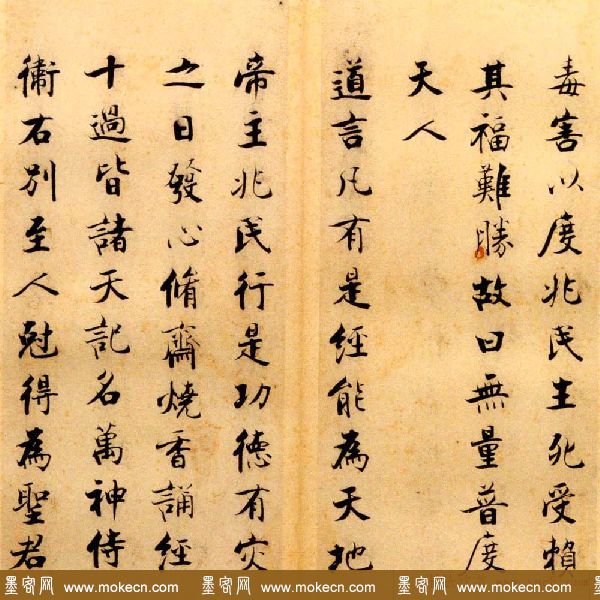 毒害以度兆民生死受賴
其福難勝故曰無量普度
天人
道言凡有是經能為天地
帝主兆民行是功德有灾
之日發心脩齋燒香誦經
十過皆諸天記名萬神侍
衛右別至人尅得為聖君
墨客网 www.mokecn.com 墨客网 www.mokecn.com 墨客网 www.mokecn.com